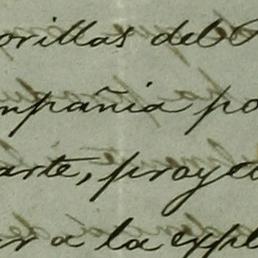 orillas del
mpañia po
arte, proyec
ar a la expl